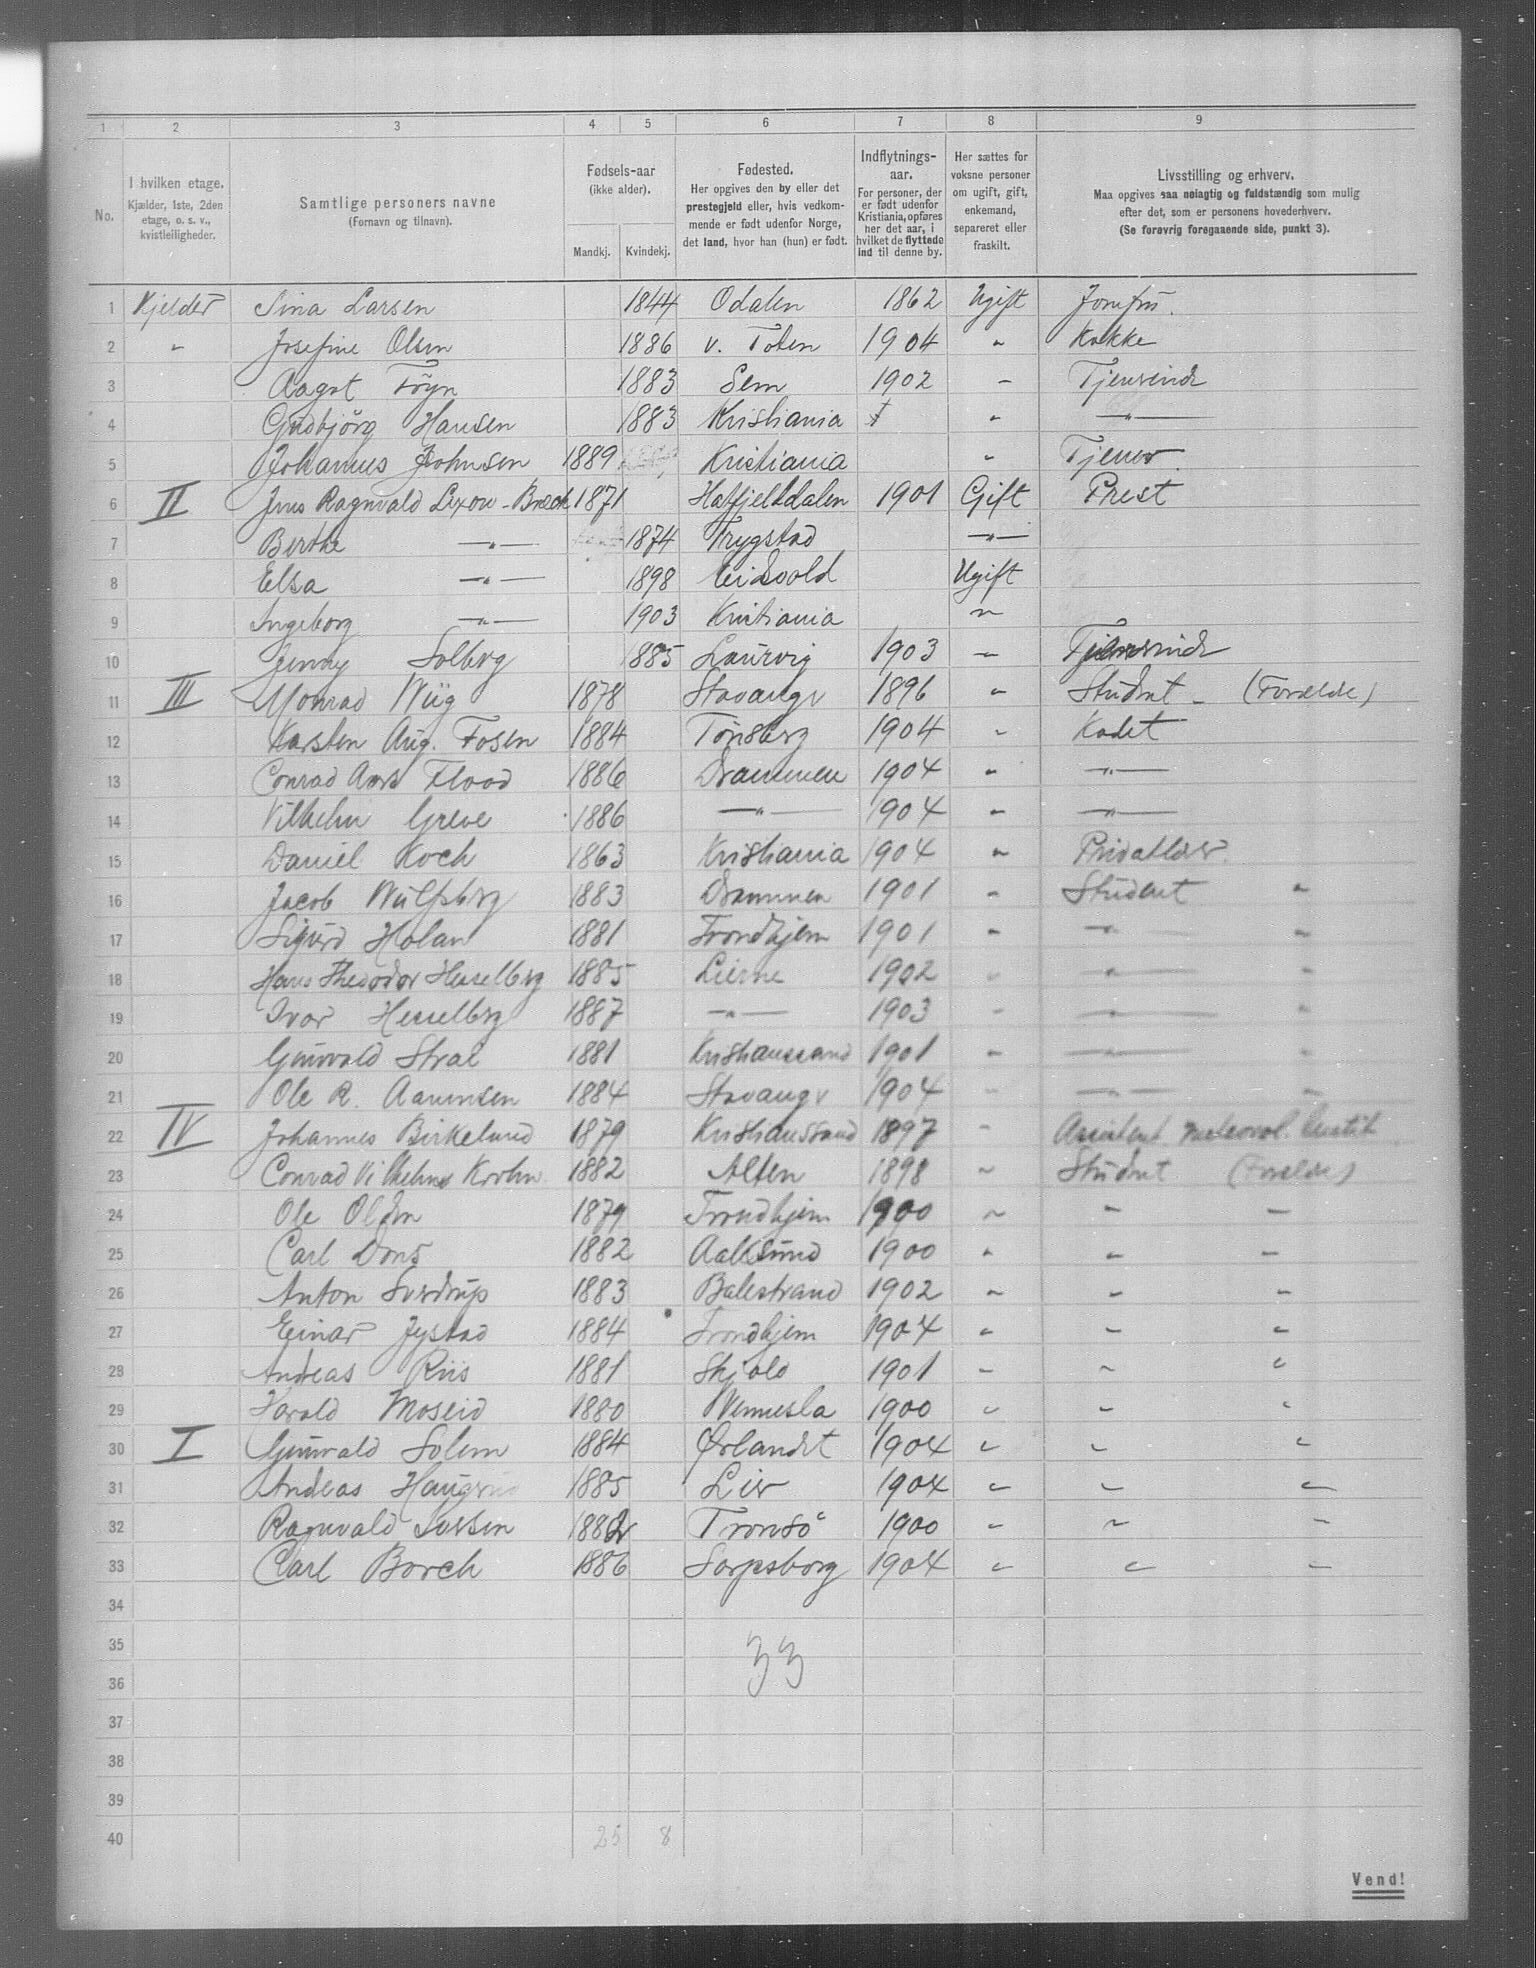 1 2 3 4 5 6 7 8 9
No.
I hvilken etage.
Kjælder, 1ste, 2den
etage, o. s. v.,
kvistleiligheder.
Samtlige personers navne
(Fornavn og tilnavn).
Fødsels-aar
(ikke alder).
Mandkj. Kvindekj.
Fødested.
Her opgives den by eller det
prestegjeld eller, hvis vedkom-
mende er født udenfor Norge,
det land, hvor han (hun) er født.
Indflytnings-
aar.
For personer, der
er født udenfor
Kristiania, opføres
her det aar, i
hvilket de flyttede
ind til denne by.
Her sættes for
voksne personer
om ugift, gift,
enkemand,
separeret eller
fraskilt.
Livsstilling og erhverv.
Maa opgives saa nøiagtig og fuldstændig som mulig
efter det, som er personens hovederhverv.
(Se forøvrig foregaaende side, punkt 3).
1 Kjelder Sina Larsen 1844 Odalen 1862 Ugift Jomfru.
2 " Josefine Olsen 1886 v. Toten 1904 " Kokke
3 Aagot Föyn 1883 Sem 1902 " Tjenerinde
4 Gudbjörg Hansen 1883 Kristiania " — " —
5 Johannes Johnsen 1889 Kristiania " Tjener
6 II Jens Ragnvald Lixow-Bræck 1871 Hatfjelddalen 1901 Gift Prest
7 Berthe — " — 1874 Trygstad — " —
8 Elsa — " — 1898 Eidsvold Ugift
9 Ingeborg — " — 1903 Kristiania "
10 Jenny Solberg 1885 Laurvig 1903 " Tjenerinde
11 III Monrad Wiig 1878 Stavanger 1896 " Student - (Forældre)
12 Karsten Aug. Fosen 1884 Tönsberg 1904 " Kadet
13 Conrad Flood 1886 Drammen 1904 " — " —
14 Vilhelm Greve 1886 — " — 1904 " — " —
15 Daniel Koch 1863 Kristiania 1904 " Privatlærer
16 Jacob Wulfsberg 1883 Drammen 1901 " Student "
17 Sigurd Holan 1881 Trondhjem 1901 " — " — "
18 Hans Theodor Hesselberg 1885 Lierne 1902 " — " — "
19 Ivar Hesselberg 1887 — " — 1903 " — " — "
20 Gunvald Strøl 1881 Kristianssand 1901 " — " — "
21 Ole R. Aanensen 1884 Stavanger 1904 " — " — "
22 IV Johannes Birkelund 1879 Kristianssand 1897 " Assistent meteorol. Instit.
23 Conrad Vilhelms Krohn 1882 Alten 1898 " Student (Forældre)
24 Ole Olden 1879 Trondhjem 1900 " " "
25 Carl Dons 1882 Aalesund 1900 " " "
26 Anton Sverdrup 1883 Balestrand 1902 " " "
27 Einar Jystad 1884 Trondhjem 1904 " " "
28 Andreas Riis 1881 Skjold 1901 " " "
29 Harald Moseid 1880 Vennesla 1900 " " "
30 I Gunvald Solem 1884 Ørlandet 1904 " " "
31 Andreas Haugerud 1885 Lier 1904 " " "
32 Ragnvald Larsen 1882 Tromsö 1900 " " "
33 Carl Borch 1886 Sarpsborg 1904 " " "
34
35
33
36
37
38
39
40 25 8
Vend!